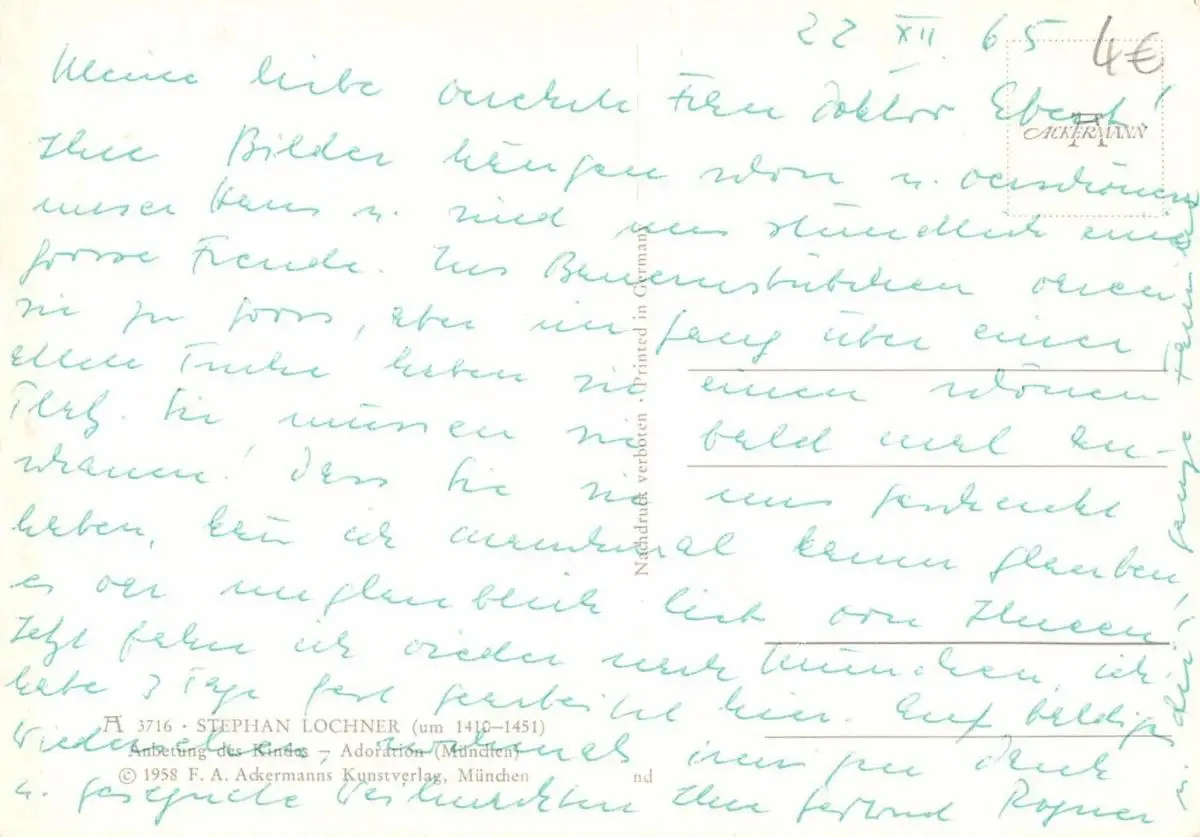 22 XII 65
4€
Meine liebe verehrte Frau Doktor Ebert!
ACKERMANN
Ihre Bilder hängen schon u. verschönern
unser Haus u. sind uns stündlich eine
grosse Freude. Ins Bauernstübchen waren
sie zu gross, aber im Gang über einer
alten Truhe haben sie einen schönen
Platz. Sie müssen sie bald mal an-
schauen! Dass Sie sie uns geschenkt
haben, kann ich manchmal kaum glauben,
es war unglaublich lieb von Ihnen
Jetzt fahre ich wieder nach München, ich
habe 3 Tage fest gearbeitet hier. Auf baldiges
Wiedersehen nochmals innigen Dank
u. gesegnete Weihnachten Ihre Gertrud
ganze Familie
Nachdruck verboten · Printed in Germany
A 3716 · STEPHAN LOCHNER (um 1410–1451)
Anbetung des Kindes – Adoration (München)
© 1958 F. A. Ackermanns Kunstverlag, München
nd